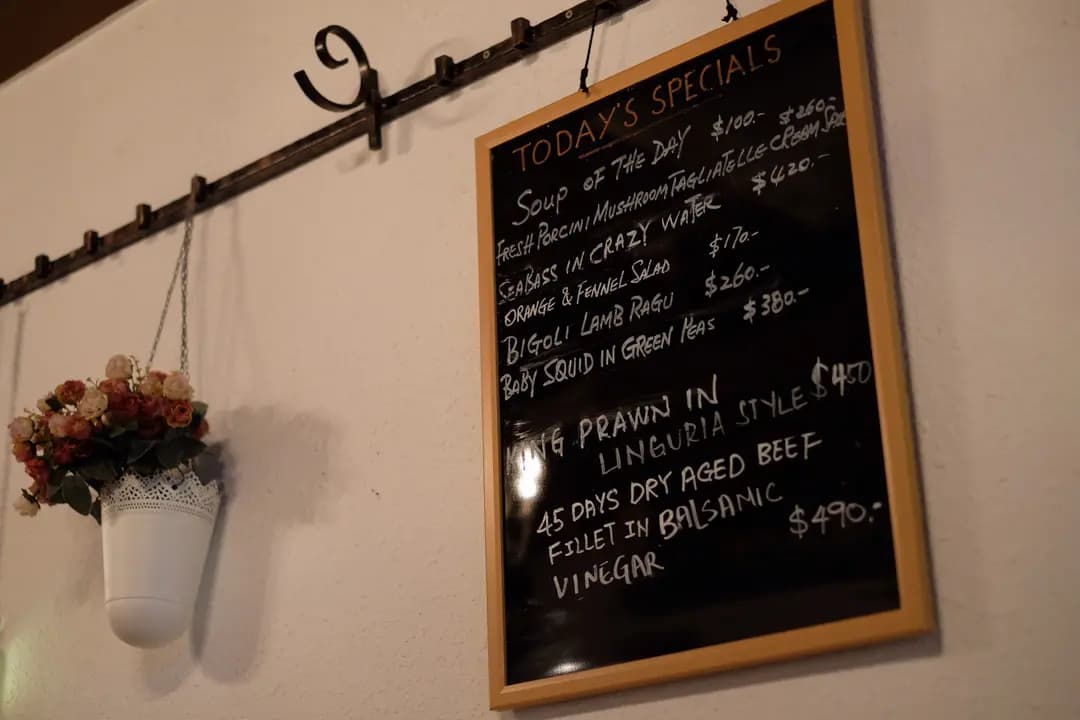 TODAY'S SPECIALS
SOUP OF THE DAY $100.-
FRESH PORCINI MUSHROOM TAGLIATELLE CREAM $260.-
SEABASS IN CRAZY WATER $420.-
ORANGE & FENNEL SALAD $170.-
BIGOLI LAMB RAGU $260.-
BABY SQUID IN GREEN PEAS $380.-
PRAWN IN
LINGURIA STYLE $450
45 DAYS DRY AGED BEEF
FILLET IN BALSANIC
VINEGAR $490.-